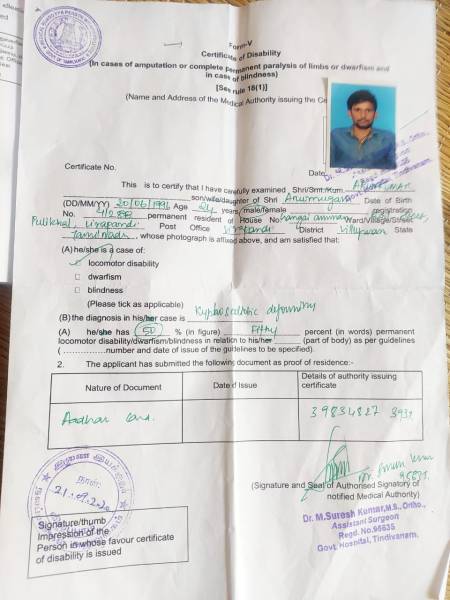 Form-V
Certificate of Disability
(In cases of amputation or complete permanent paralysis of limbs or dwarfism and
in case of blindness)
[See rule 18(1)]
(Name and Address of the Medical Authority issuing the Ce
Certificate No.
Date
This is to certify that I have carefully examined Shri/Smt./Kum.
son/wife/daughter of Shri Arumugam Date of Birth
(DD/MM/YY) 20/06/1996 Age 24 years, male/female registration
No. 4/288 permanent resident of House No Ward/Village/Street
Post Office District Villupuram State
Tamil Nadu, whose photograph is affixed above, and am satisfied that:
(A) he/she is a case of:
locomotor disability
dwarfism
blindness
(Please tick as applicable)
(B) the diagnosis in his/her case is
(A) he/she has 50 % (in figure) Fifty percent (in words) permanent
locomotor disability/dwarfism/blindness in relation to his/her (part of body) as per guidelines
(...............number and date of issue of the guidelines to be specified).
2. The applicant has submitted the following document as proof of residence:-
Nature of Document
Date of Issue
Details of authority issuing
certificate
Aadhar Card.
39834827 3931
21.09.2020
(Signature and Seal of Authorised Signatory of
notified Medical Authority)
Dr. M.Suresh Kumar,M.S., Ortho.,
Assistant Surgeon
Regd. No.95635
Govt. Hospital, Tindivanam.
Signature/thumb
Impression of the
Person in whose favour certificate
of disability is issued